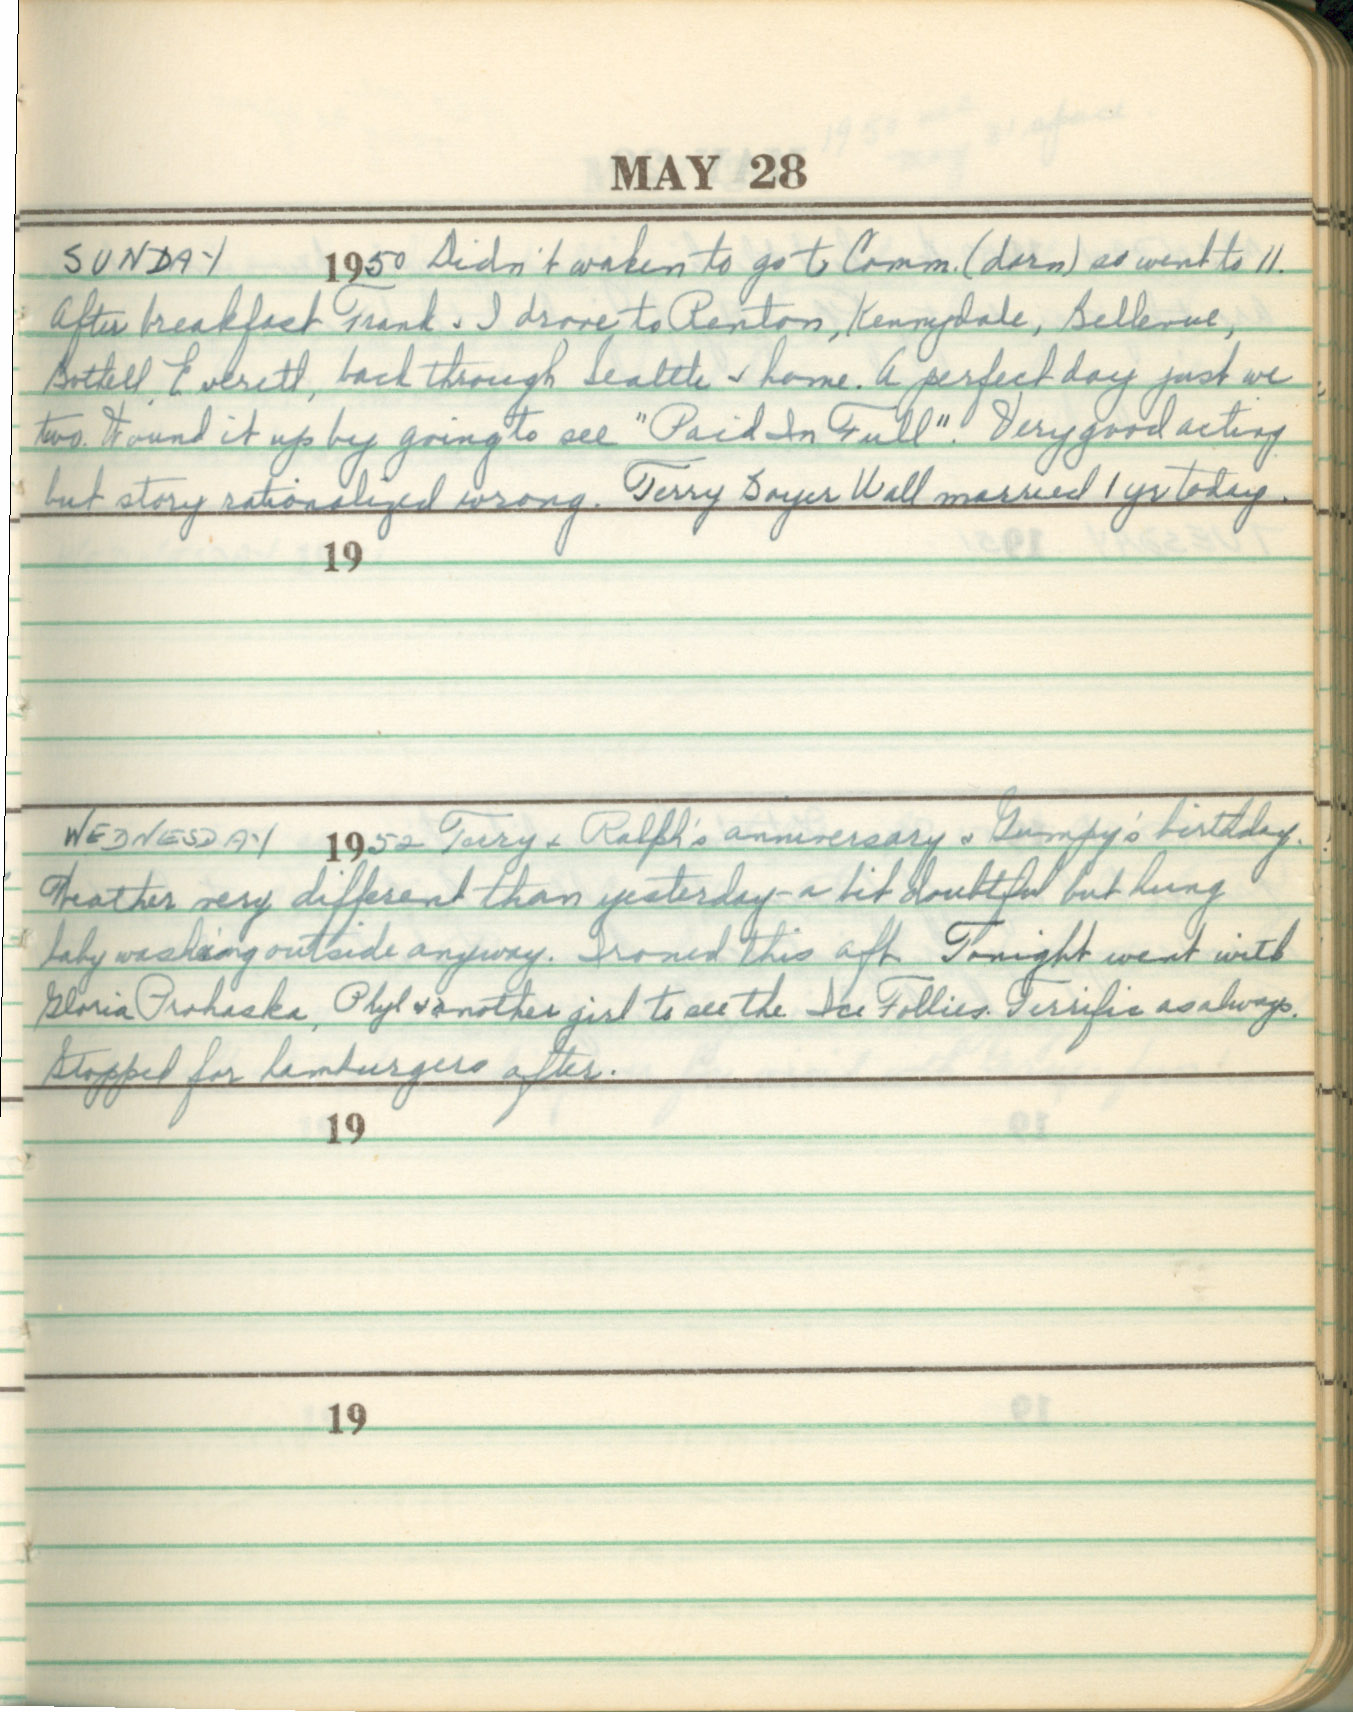 MAY 28
SUNDAY 1950 Didn't waken to go to Comm. (darn) so went to 11.
After breakfast Frank & I drove to Renton, Kennydale, Bellevue,
Bothell, Everett, back through Seattle & home. A perfect day just we
two. Wound it up by going to see "Paid In Full". Very good acting
but story rationalized wrong. Terry Boyer Wall married 1 yr today.
19
WEDNESDAY 1952 Terry & Ralph's anniversary & Gumpy's birthday.
Weather very different than yesterday - a bit doubtful but hung
baby washing outside anyway. Ironed this aft. Tonight went with
Gloria Prohaska, Phyl & another girl to see the Ice Follies. Terrific as always.
Stopped for hamburgers after.
19
19